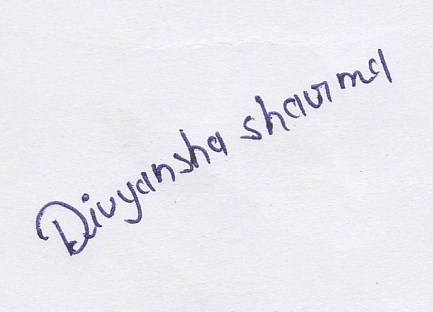 Divyansha sharma